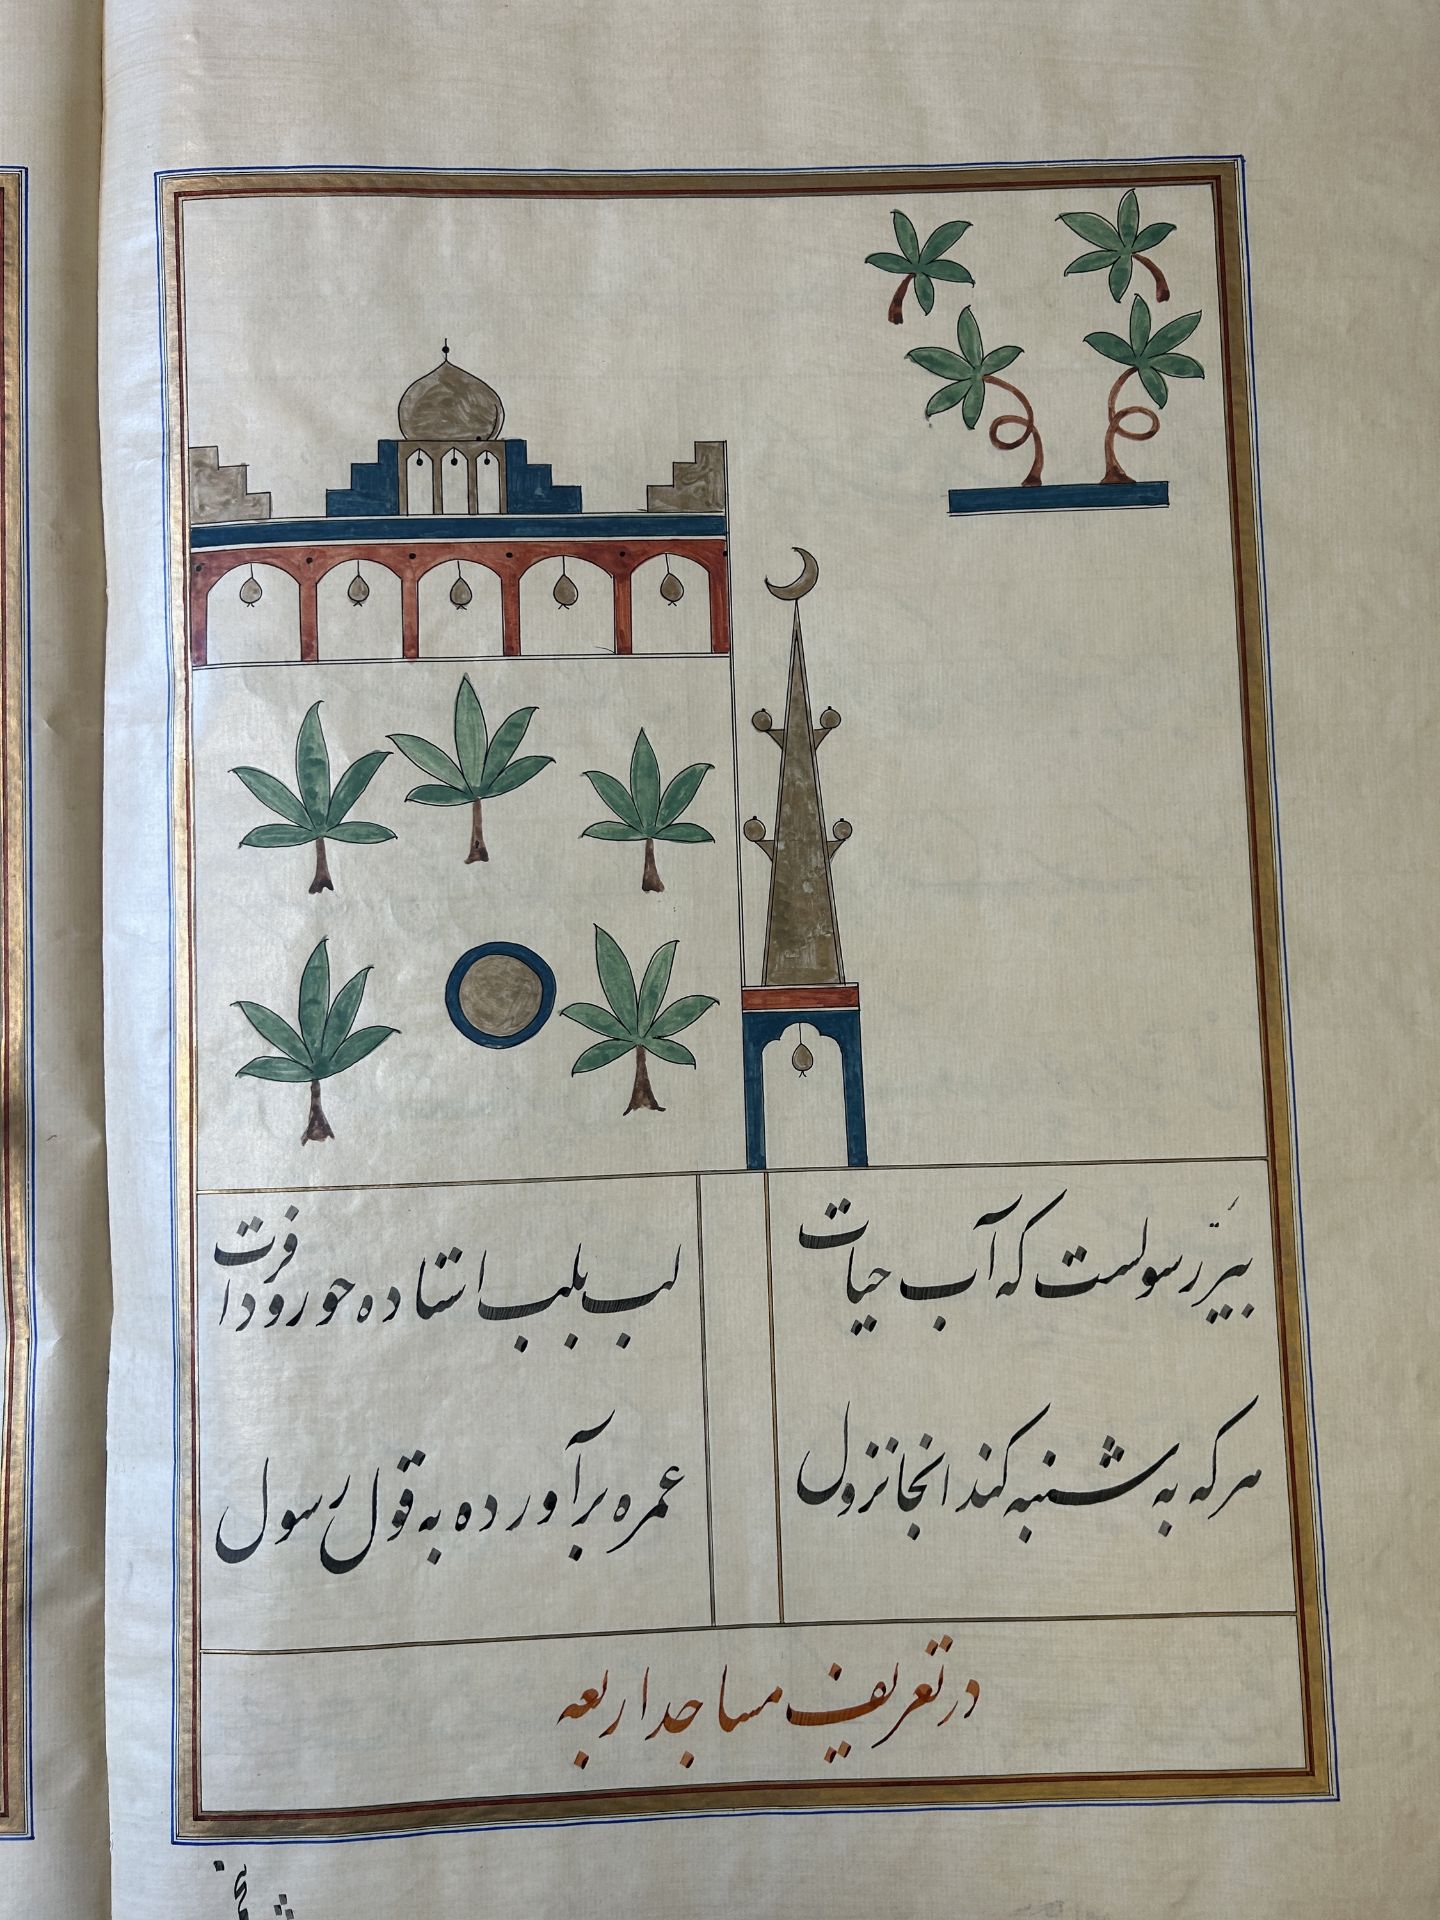 بیر رسولست که آب حیات
لب بلب استاده حورود افرت
هرکه به شنبه کند انجا نزول
عمره برآورده به قول رسول
در تعریف مساجد اربعه